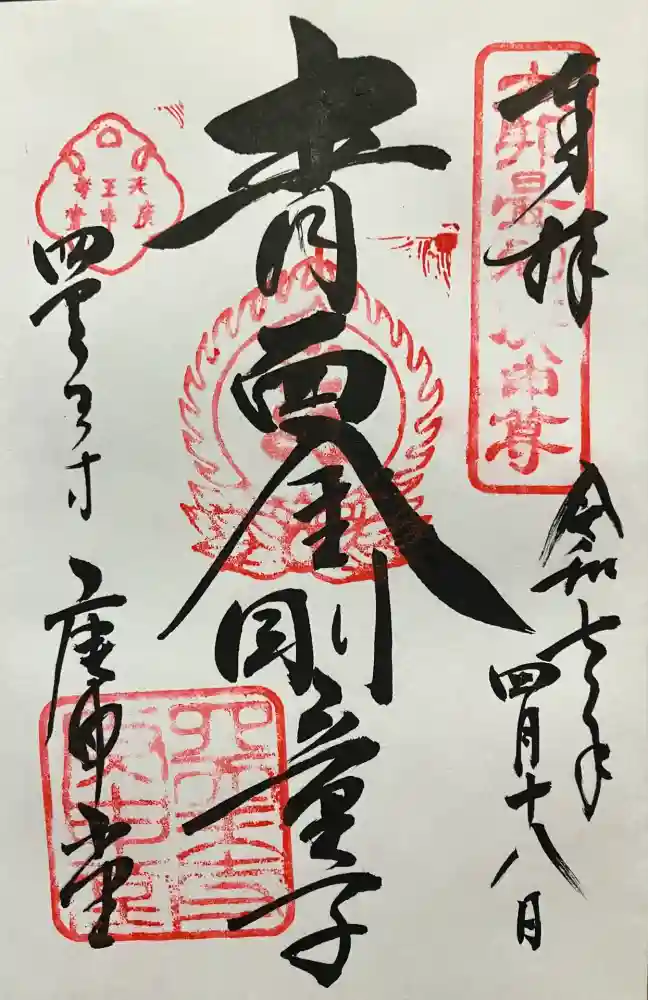 奉拝
令和七年
四月十八日
本邦最初庚申尊
青面金剛童子
四天王寺
庚申堂
四天王寺
庚申堂